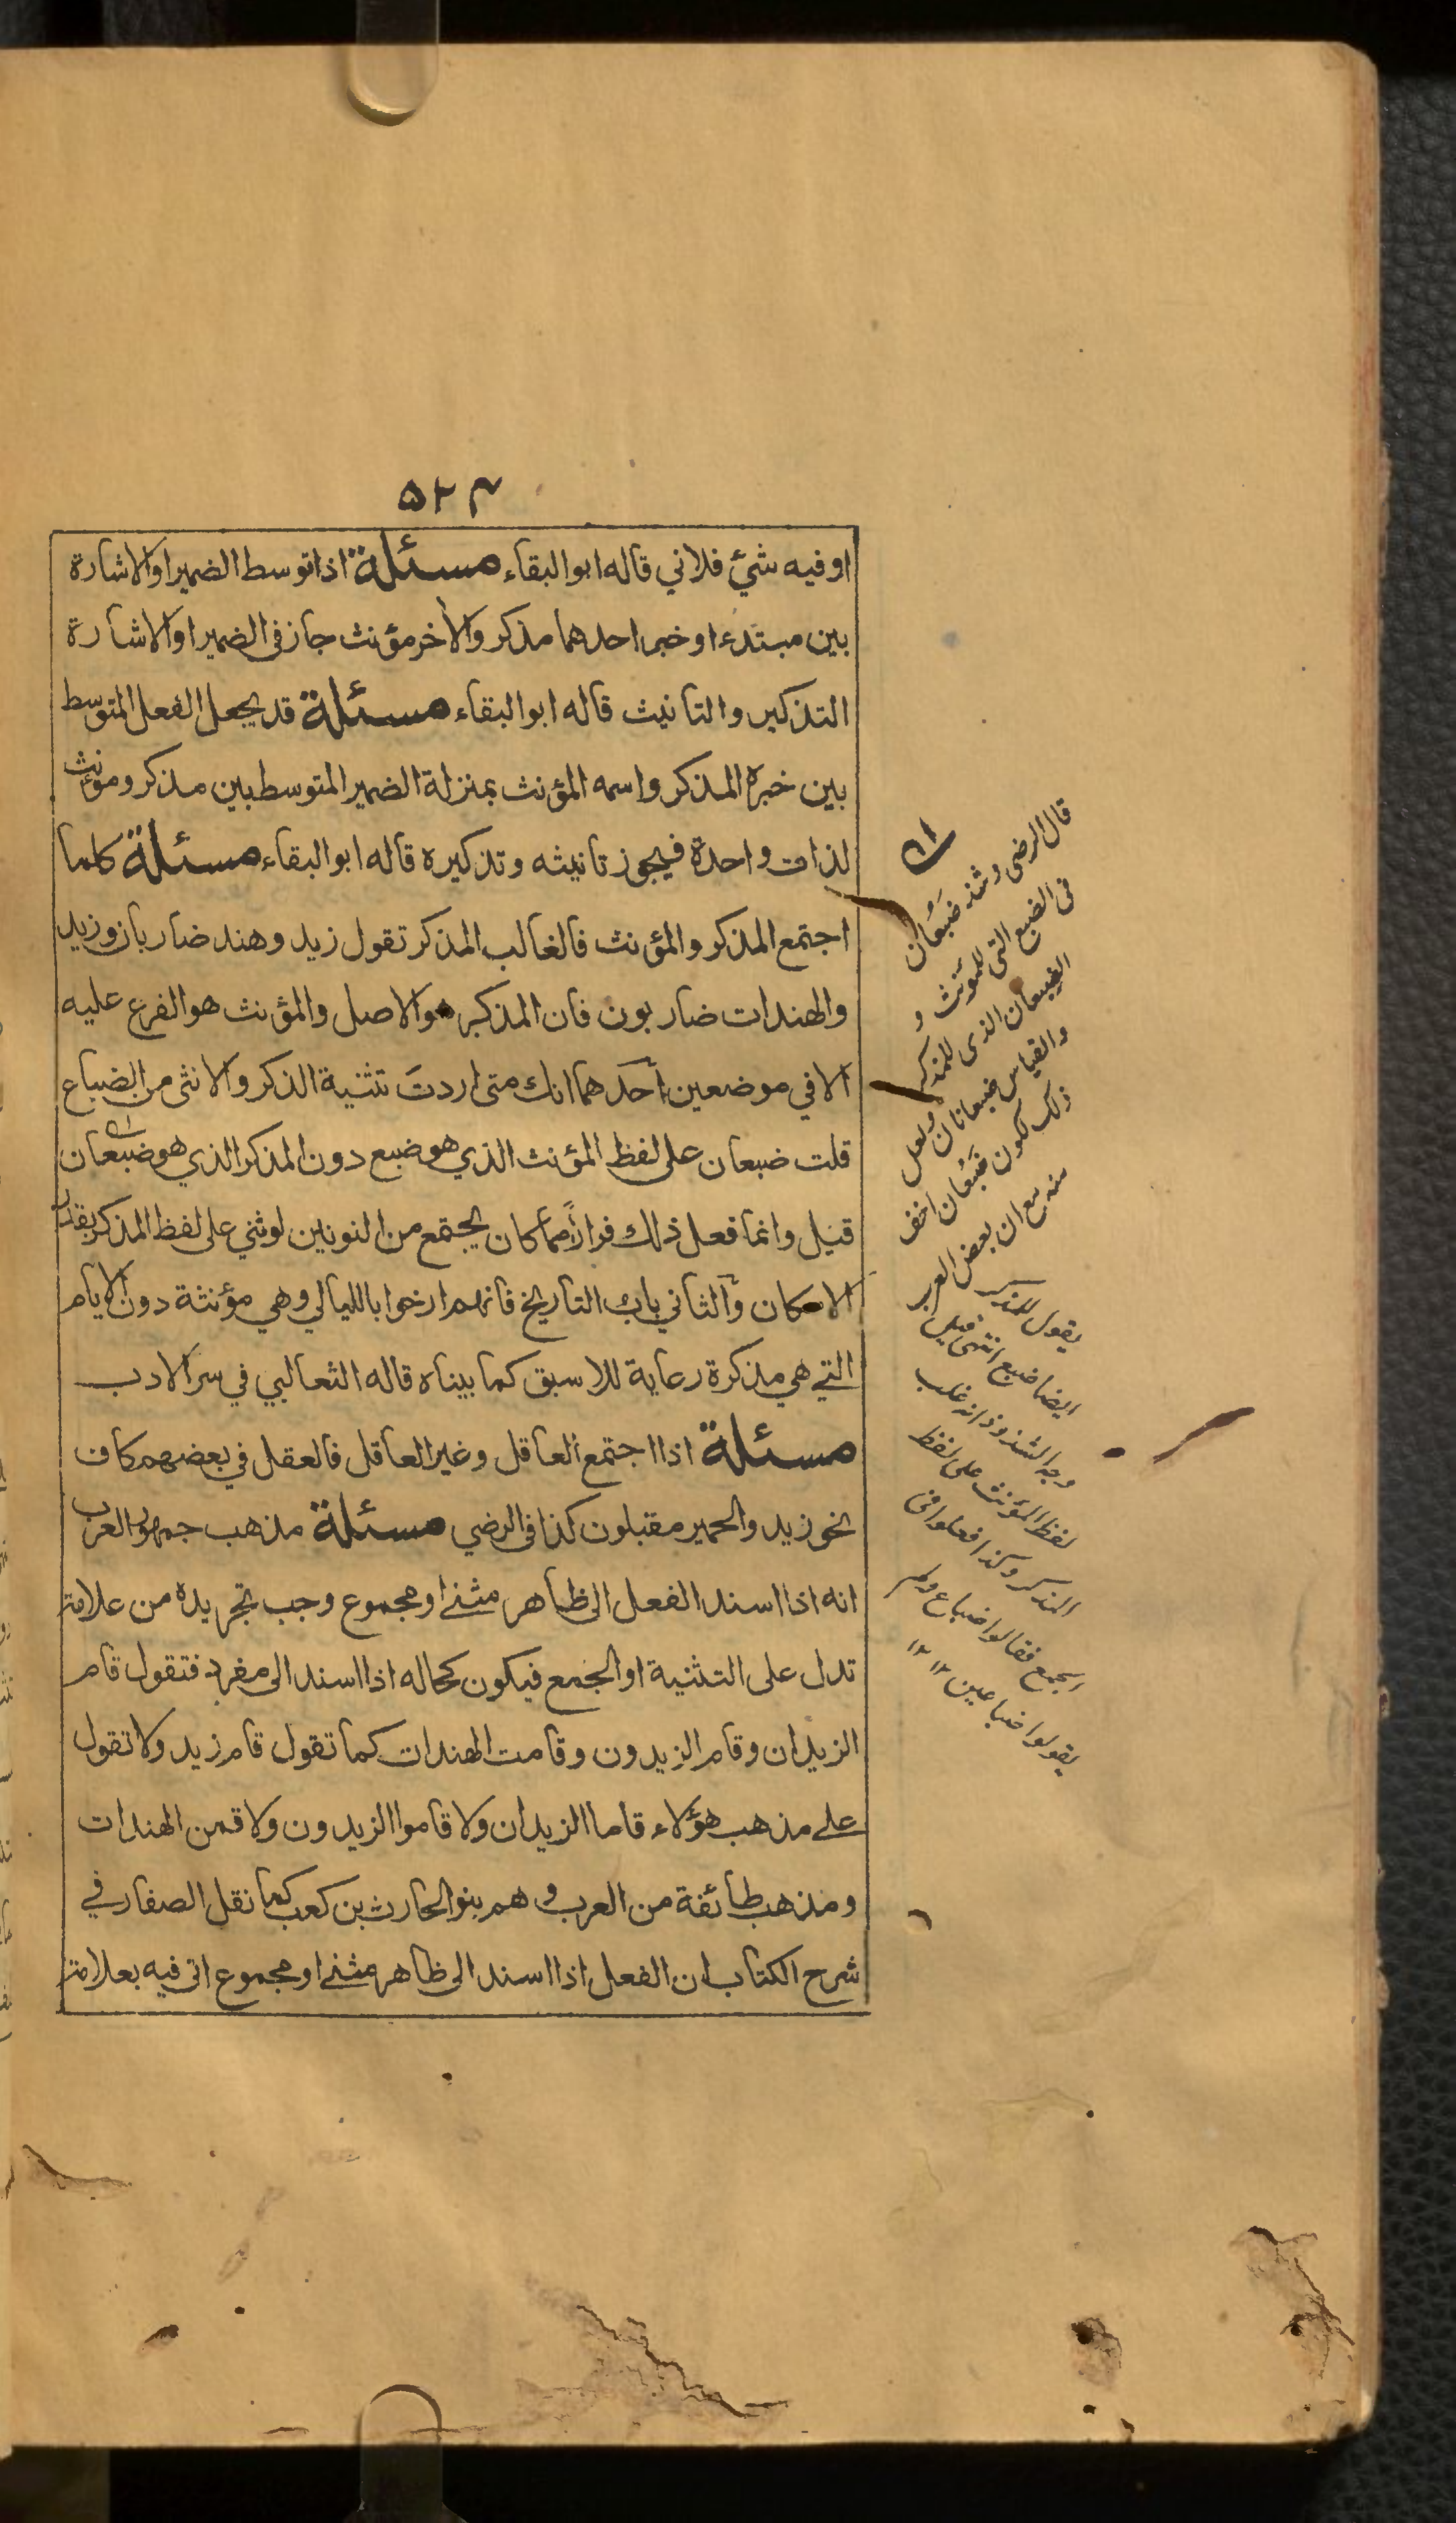 ۵۲۴
او فيه شئ فلاني قاله ابو البقاء مسئلة اذا توسط الضمير او الاشارة
بين مبتدء او خبر احدهما مذكر والأخر مؤنث جاز فى الضمير او الاشارة
التذكير والتانيث قاله ابو البقاء مسئلة قد يجعل الفعل المتوسط
بين خبره المذكر واسمه المؤنث بمنزلة الضمير المتوسط بين مذكر ومؤنث
لذات واحدة فيجوز تانيثه وتذكيره قاله ابو البقاء مسئلة كلما
اجتمع المذكر والمؤنث فالغالب المذكر تقول زيد وهند ضاربان وزيد
والهندات ضاربون فان المذكر هو الاصل والمؤنث هو الفرع عليه
الا في موضعين أحدهما انك متى اردتَ تثنية الذكر والانثى من الضباع
قلت ضبعان على لفظ المؤنث الذي هو ضبع دون المذكر الذي هو ضبعان
قيل وانما فعل ذلك فرارًا مما كان يجتمع من النونين لو ثني على لفظ المذكر بقدر
الامكان والثاني باب التاريخ فانهم ارخوا بالليالي وهي مؤنثة دون الايام
التي هي مذكرة رعاية للاسبق كما بيناه قاله الثعالبي في سر الادب
مسئلة اذا اجتمع العاقل وغير العاقل فالعقل في بعضهم كاف
نحو زيد والحمير مقبلون كذا فى الرضي مسئلة مذهب جمهور العرب
انه اذا اسند الفعل الى ظاهر مثنے او مجموع وجب تجريده من علامة
تدل على التثنية او الجمع فيكون كحاله اذا اسند الى مفرد فتقول قام
الزيدان وقام الزيدون وقامت الهندات كما تقول قام زيد ولا تقول
علے مذهب هؤلاء قاما الزيدان ولا قاموا الزيدون ولا قمن الهندات
ومذهب طائفة من العرب وهم بنو الحارث بن كعب كما نقل الصفار في
شرح الكتاب ان الفعل اذا اسند الى ظاهر مثنے او مجموع اتى فيه بعلامة
قال الرضى وشذ ضَبُعان
فى الضبع التى للمؤنث و
الضبعان الذى للمذكر
والقياس ضبعانان ولعل
ذلك لكون ضَبُعان اخف
منه مع ان بعض العرب
يقول للمذكر
ايضا ضبع انتهى قيل
وجه الشذوذ انه غلب
لفظ المؤنث على لفظ
المذكر وكذا فعلوا فى
الجمع فقالوا ضباع ولم
يقولوا ضباعين ١٢ ١٢